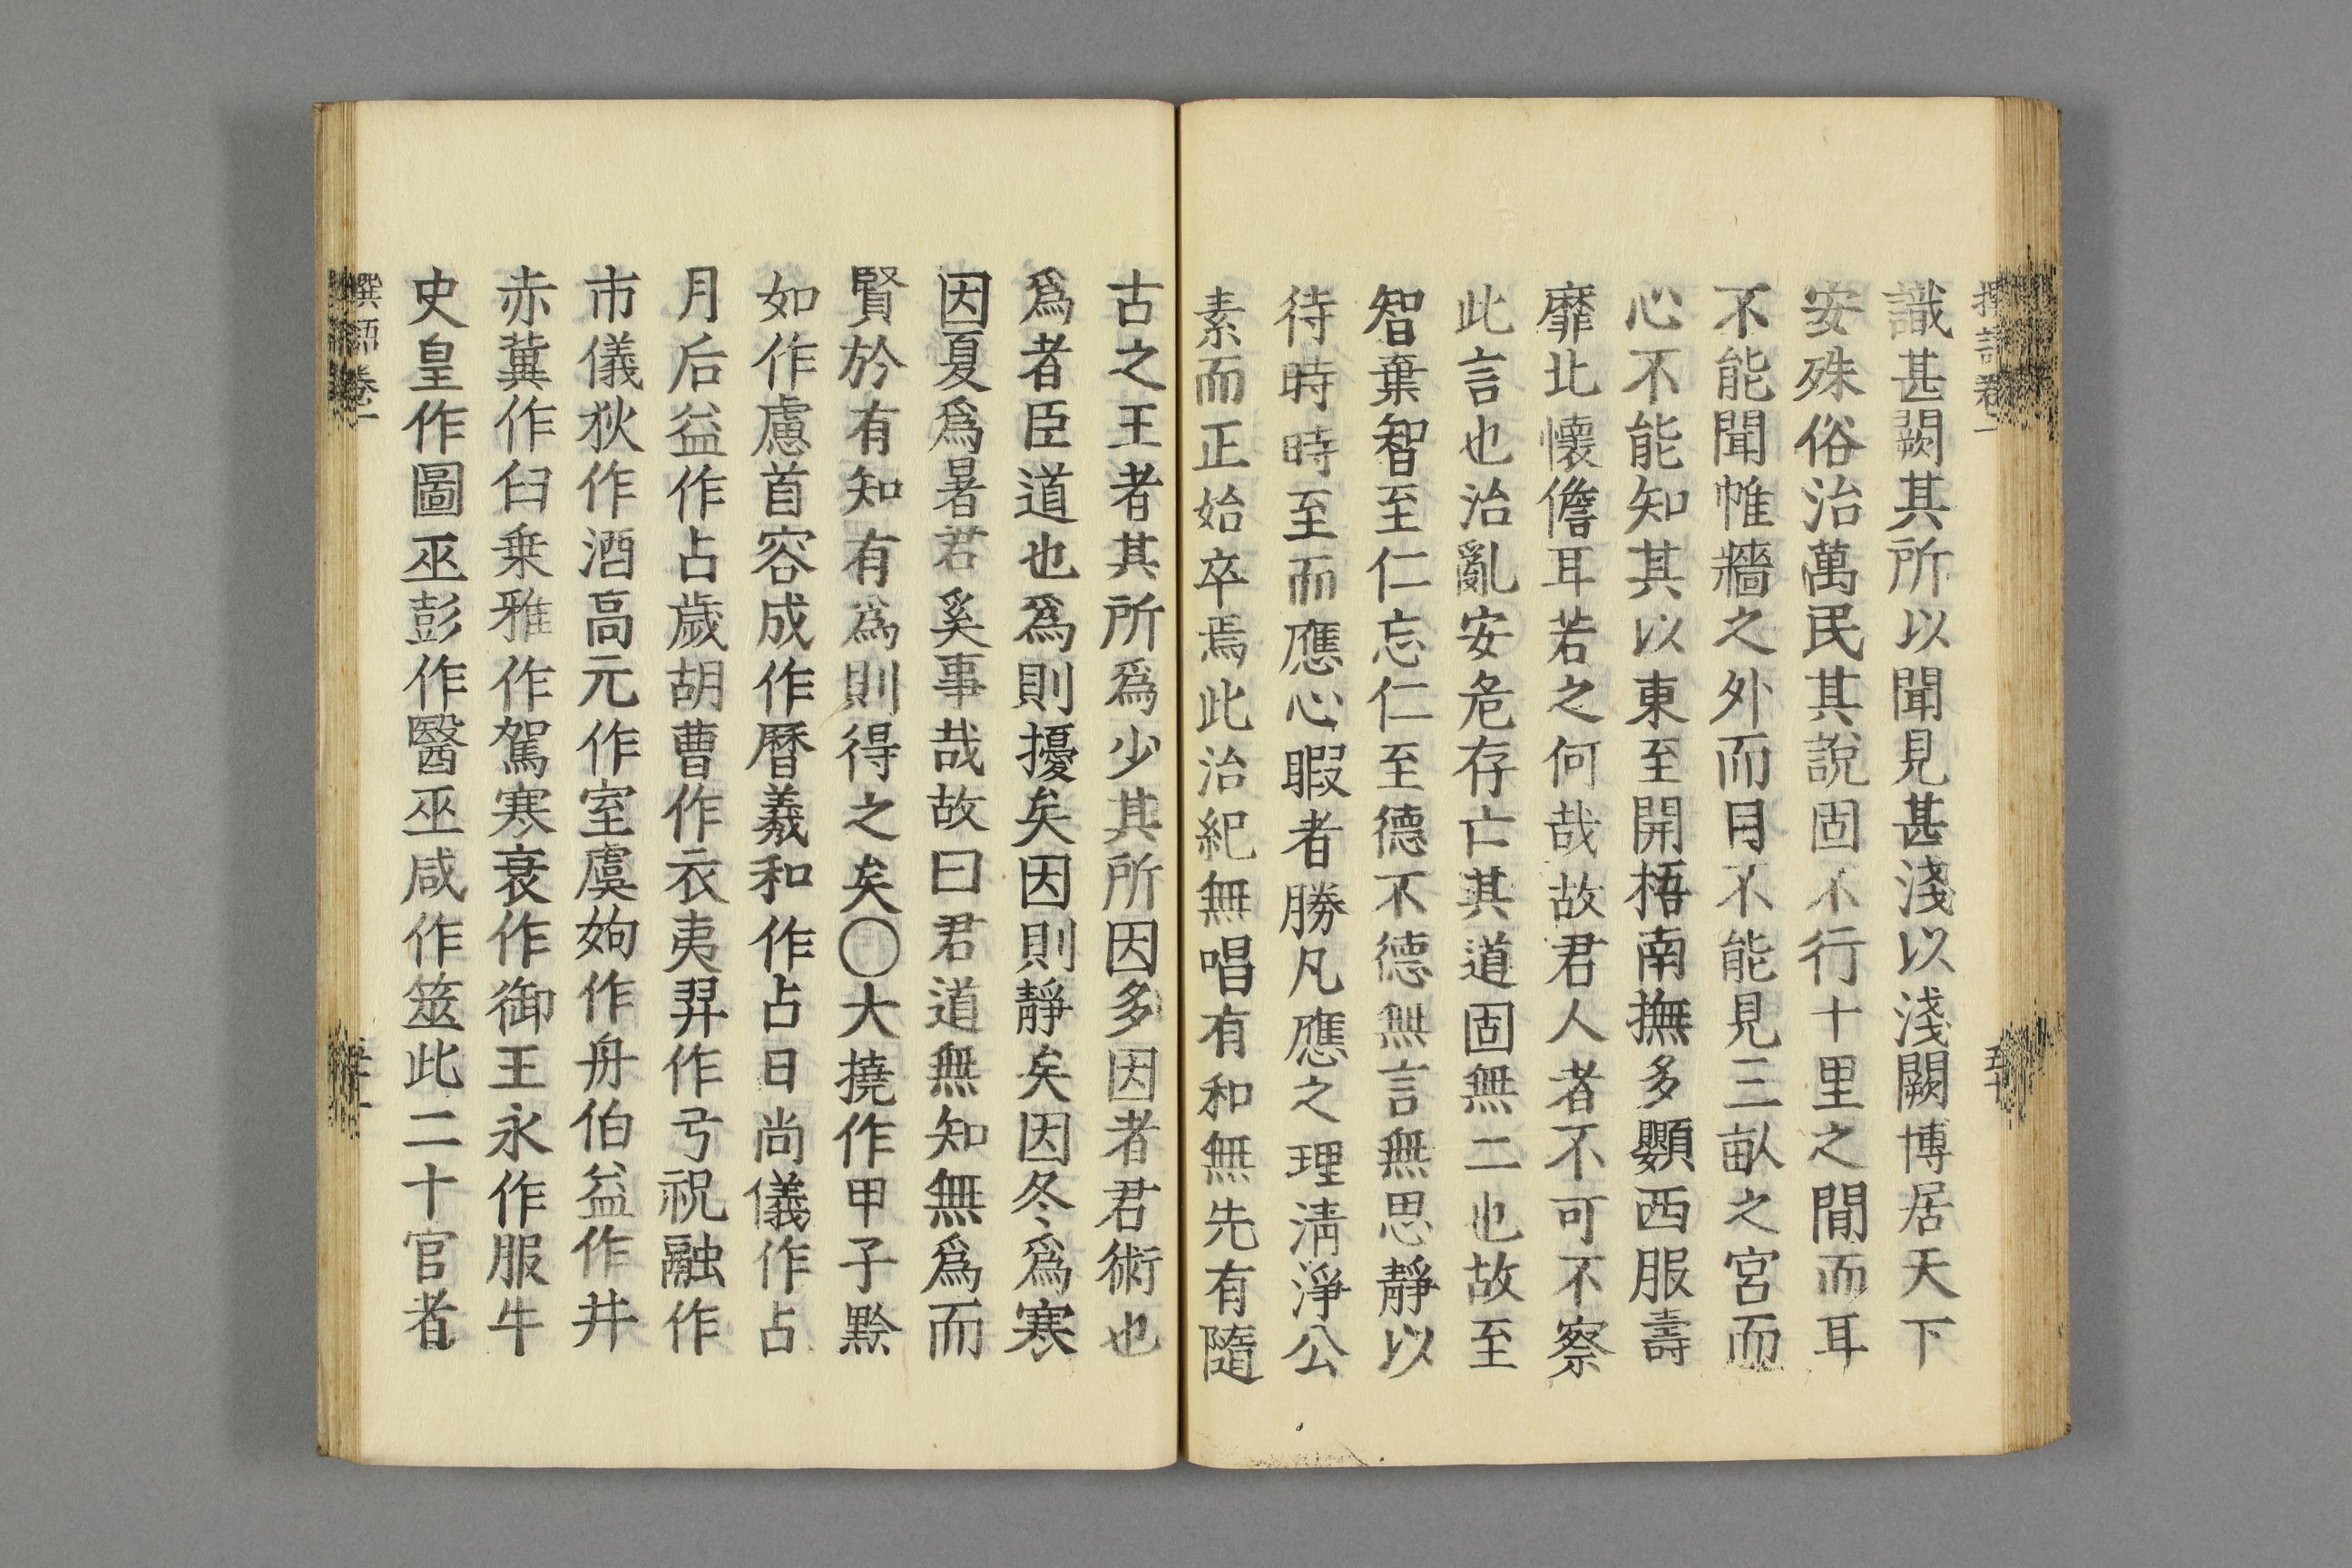 識甚闕其所以聞見甚淺以淺闕博居天下
安殊俗治萬民其說固不行十里之間而耳
不能聞帷牆之外而目不能見三畝之宮而
心不能知其以東至開梧南撫多䫫西服壽
靡北懷儋耳若之何哉故君人者不可不察
此言也治亂安危存亡其道固無二也故至
智棄智至仁忘仁至德不德無言無思靜以
待時時至而應心暇者勝凡應之理淸淨公
素而正始卒焉此治紀無唱有和無先有隨
古之王者其所爲少其所因多因者君術也
爲者臣道也爲則擾矣因則靜矣因冬爲寒
因夏爲暑君奚事哉故曰君道無知無爲而
賢於有知有爲則得之矣〇大撓作甲子黔
如作慮首容成作曆羲和作占日尚儀作占
月后益作占歲胡曹作衣夷羿作弓祝融作
市儀狄作酒高元作室虞姁作舟伯益作井
赤冀作臼乗雅作駕寒衰作御王永作服牛
史皇作圖巫彭作醫巫咸作筮此二十官者